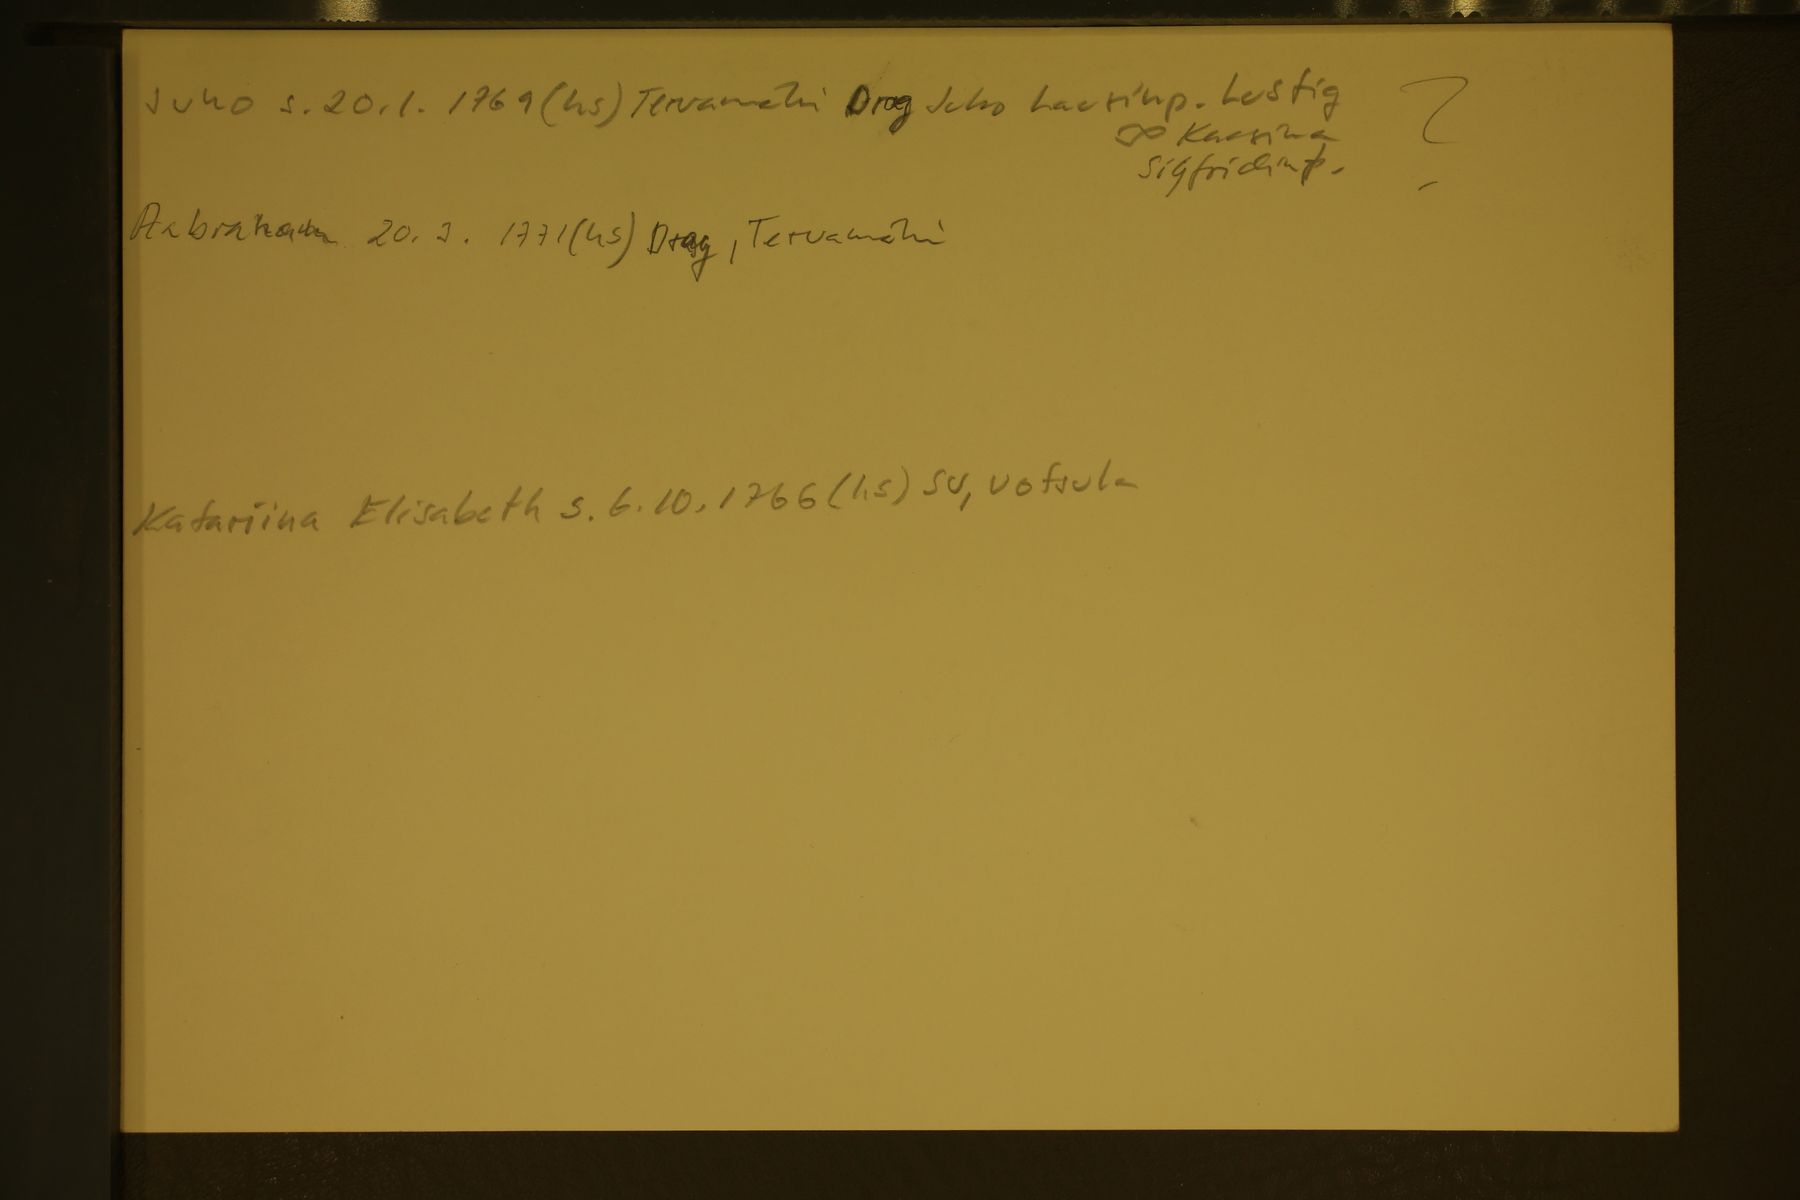 Juho s. 20.1. 1769 (hs) Tervamäki Drag Juho Laurinp. Lustig ?
∞ Kaarina
Sigfridinp.
Aabraham 20.3. 1771 (hs) Drag, Tervamäki
Katariina Elisabeth s. 6.10.1766 (hs) SU, Votsula